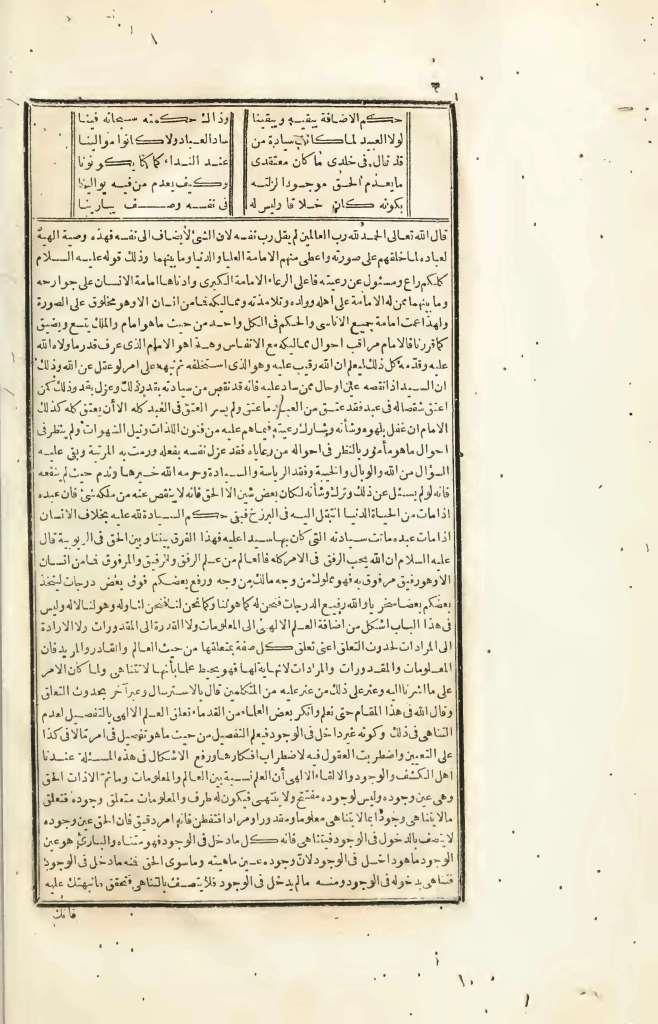 ٣
حكم الاضافة يبقيه ويبقينا وذاك حكم منه سبحانه فينا
لولا العبيد لما كانت سيادة من ساد العباد ولا كانوا موالينا
قد قال في خلدي ما كان معتقدي عند النداء كما كنا يكونونا
ما بعدم الحق موجودا لزلته وكيف يعدم من فيه يوالينا
بكونه كان خلاقا وليس له في نفسه وصف يبارينا
قال الله تعالى الحمد لله رب العالمين لم يقل رب نفسه لان الشئ لا يضاف الى نفسه فهذه وصية الهية
لعباده لما خلقهم على صورته واعطى منهم الامامة العليا والدنيا وما بينهما وذلك قوله عليه السلام
كلكم راع ومسئول عن رعيته فاعلى الرعاء الامامة الكبرى وادناها امامة الانسان على جوارحه
وما بينهما من له الامامة على أهله وولده وتلامذته ومماليكه فما من انسان الا وهو مخلوق على الصورة
ولهذا عمت امامة جميع الاناسى والحكم في الكل واحد من حيث ما هو امام والملك يتسع ويضيق
كما قررنا فالامام مراقب احوال مماليكه مع الانفاس وهذا هو الامام الذى عرف قدر ما ولاه الله
عليه وقدمه كل ذلك ليعلم ان الله رقيب عليه وهو الذى استخلفه ثم نبهه على امر لو عقل عن الله وذلك
ان السيد اذا نقصه على او حال ممن ساد عليه فانه قد نقص من سيادته بقدر ذلك وعزل بقدر ذلك كمن
اعتق شقصا له في عبد فقد عتق من العبد ما عتق ولم يسر العتق في العبد كله الا أن يعتق كله كذلك
الامام ان غفل بلهوه وشأنه وشارك رعيته فيما هم عليه من فنون اللذات ونيل الشهوات ولم ينظر في
احوال ما هو مأمور بالنظر في احواله من رعاياه فقد عزل نفسه بفعله ورمت به المرتبة وبقى عليه
السؤال من الله والوبال والخيبة وفقد الرياسة والسيادة وحرمه الله خيرها وندم حيث لم ينفعه
فانه لو لم يسئل عن ذلك وترك وشأنه لكان بعض شين الا الحق فانه لا ينقص عنه من ملكه شئ فان عبده
اذا مات من الحياة الدنيا انتقل اليه في البرزخ فبقى حكم السيادة لله عليه بخلاف الانسان
اذا مات عبده ماتت سيادته التى كان بها سيدا عليه فهذا الفرق بيننا وبين الحق في الربوبية قال
عليه السلام ان الله يحب الرفق في الامر كله فالعالم من علم الرفق والرفيق والمرفوق فما من انسان
الا وهو رفيق مرفوق به فهو مملوك من وجه مالك من وجه ورفع بعضكم فوق بعض درجات ليتخذ
بعضكم بعضا سخريا والله رفيع الدرجات فنحن له كما هو لنا وكما نحن لنا فنحن لنا وله وهو لنا لا له وليس
في هذا الباب اشكل من اضافة العلم الالهى الى المعلومات ولا القدرة الى المقدورات ولا الارادة
الى المرادات لحدوث التعلق اعنى تعلق كل صفة بمتعلقها من حيث العالم والقادر والمريد فان
المعلومات والمقدورات والمرادات لا نهاية لها فهو يحيط علما بأنها لا تتناهى ولما كان الامر
على ما اشرنا اليه وعثر على ذلك من عثر عليه من المتكلمين قال بالاسترسال وعبر آخر بحدوث التعلق
وقال الله في هذا المقام حتى نعلم وأنكر بعض العلماء من القدماء تعلق العلم الالهى بالتفصيل لعدم
التناهى في ذلك وكونه غير داخل في الوجود فيعلم التفصيل من حيث ما هو تفصيل في امر ما لا في كذا
على التعيين واضطربت العقول فيه لاضطراب افكارها ورفع الاشكال في هذه المسئلة عندنا
اهل الكشف والوجود والالقاء الالهى أن العلم نسبة بين العالم والمعلومات وما ثم الا ذات الحق
وهى عين وجوده وليس لوجوده مفتتح ولا منتهى فيكون له طرف والمعلومات متعلق وجوده فتعلق
ما لا يتناهى وجودا بما لا يتناهى معلوما ومقدورا ومرادا فتفطن فانه امر دقيق فان الحق عين وجوده
لا يتصف بالدخول في الوجود فيتناهى فانه كل ما دخل في الوجود فهو متناه والبارئ هو عين
الوجود ما هو داخل في الوجود لان وجوده عين ماهيته وما سوى الحق فمنه ما دخل في الوجود
فتناهى بدخوله في الوجود ومنه ما لم يدخل في الوجود فلا يتصف بالتناهى فتحقق ما نبهتك عليه
فانك